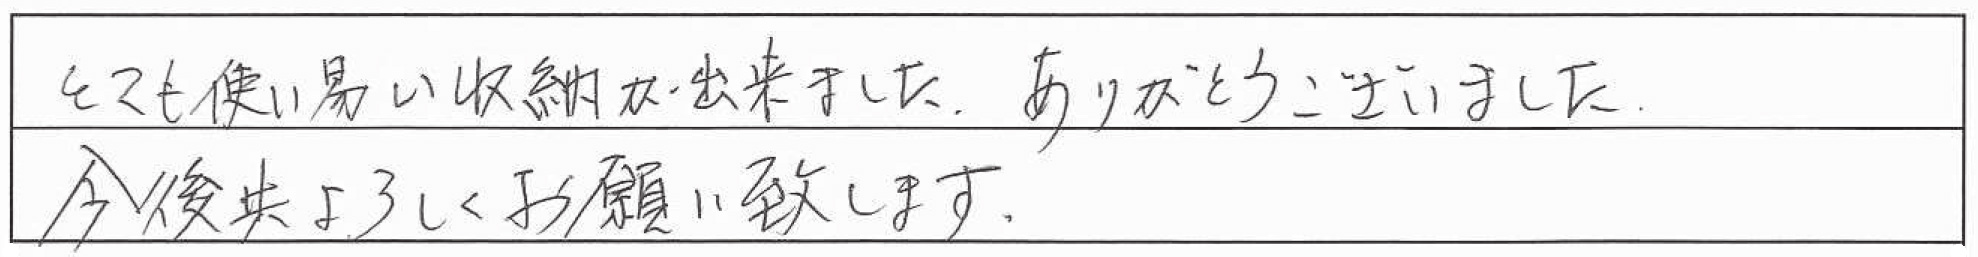 とても使い易い収納が出来ました。ありがとうございました。
今後共よろしくお願い致します。